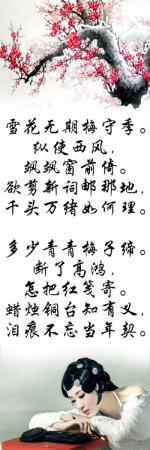 雪花无期梅守季。
纵使西风，
飒飒窗前倚。
欲剪新词邮那地，
千头万绪如何理。
多少青青梅子缔。
断了高鸿，
怎把红笺寄。
蜡烛铜台知有义，
泪痕不忘当年契。